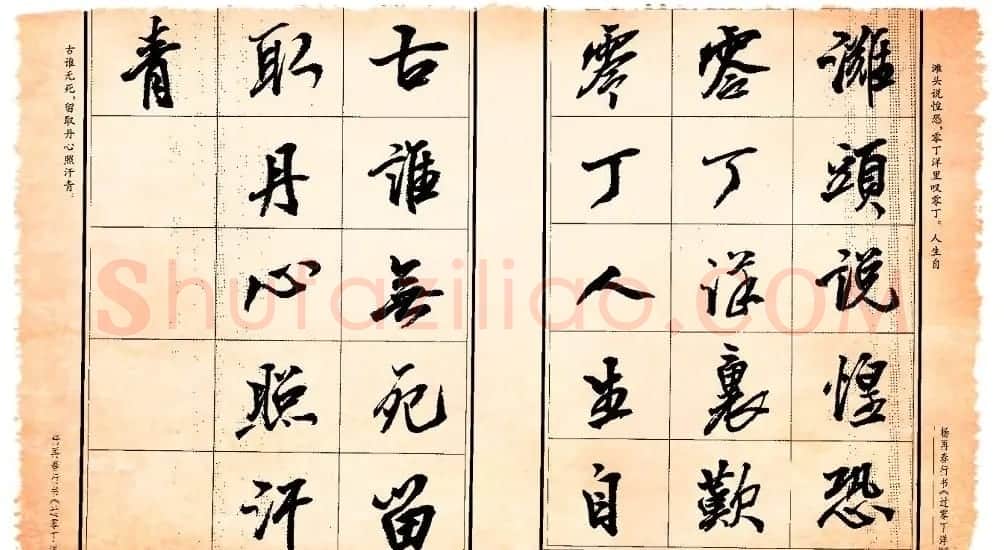 滩头说惶恐，零丁洋里叹零丁。人生自
杨再春行书《过零丁洋
灘頭説惶恐
零丁洋裏歎
零丁人生自
古誰無死留
取丹心照汗
青
古谁无死，留取丹心照汗青。
shufaziliao.com